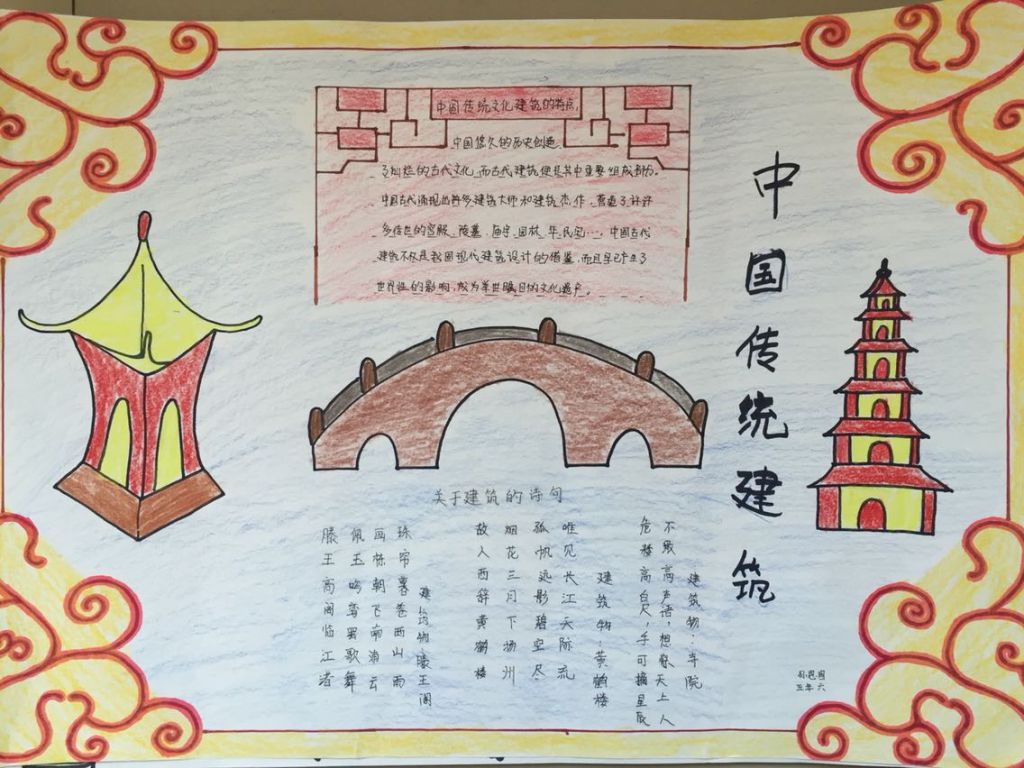 中国传统文化建筑的特点
中国悠久的历史创造
了灿烂的古代文化,而古代建筑便是其中重要组成部分。
中国古代涌现出许多建筑大师和建筑杰作,营造了许许
多传世的宫殿、陵墓、庙宇、园林、民宅…,中国古代
建筑不仅是我国现代建筑设计的借鉴,而且早已产生了
世界性的影响,成为举世瞩目的文化遗产。
中国传统建筑
关于建筑的诗句
建筑物:寺院
不敢高声语,想 天上人
危楼高百尺,手可摘星辰
建筑物:黄鹤楼
唯见长江天际流
孤帆远影碧空尽
烟花三月下扬州
故人西辞黄鹤楼
建筑物:滕王阁
珠帘暮卷西山雨
画栋朝飞南浦云
佩玉鸣鸾罢歌舞
滕王高阁临江渚
五年六